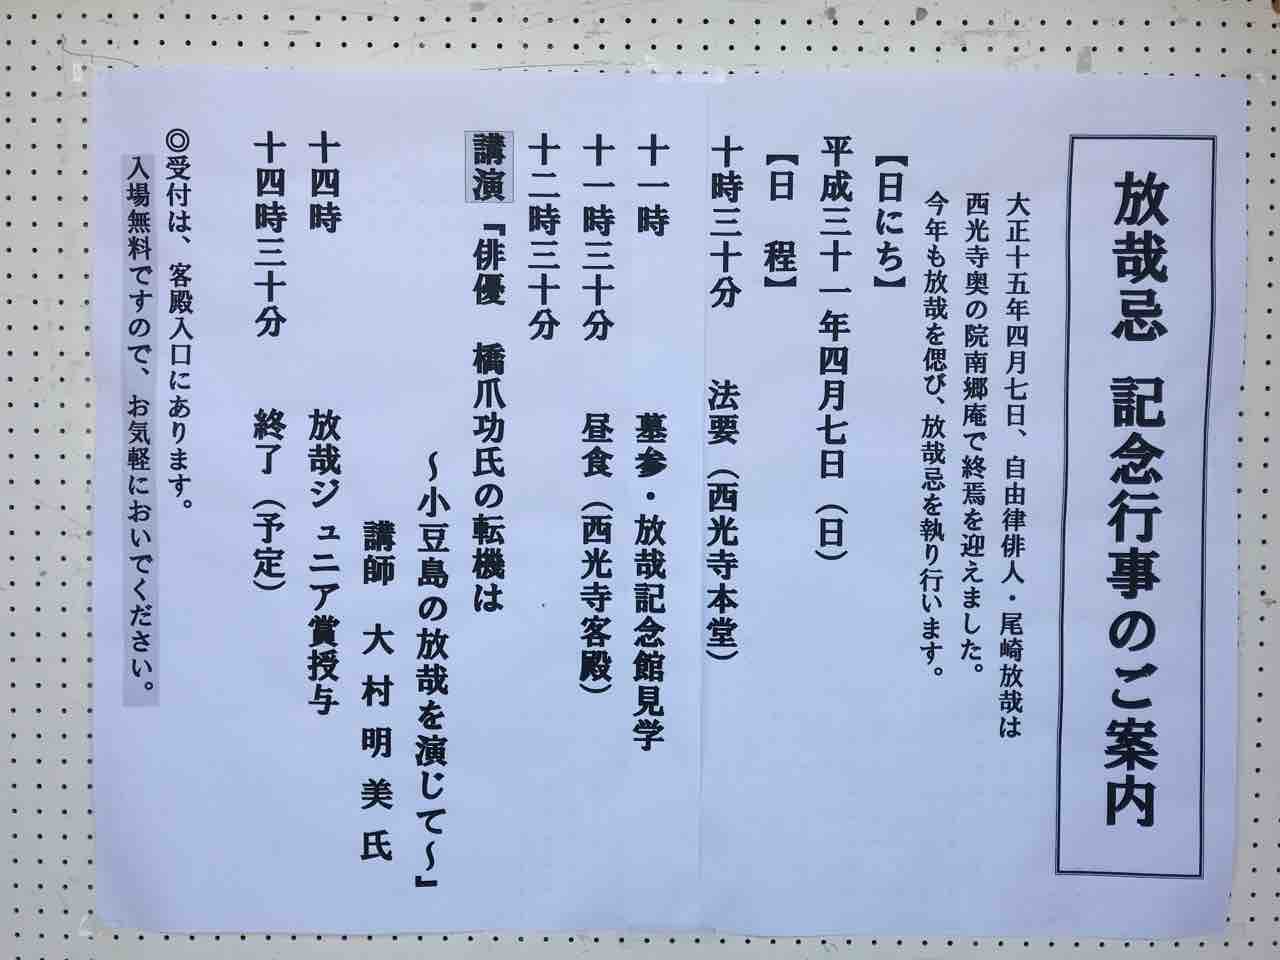 放哉忌 記念行事のご案内
大正十五年四月七日、自由律俳人・尾崎放哉は
西光寺奥の院南郷庵で終焉を迎えました。
今年も放哉を偲び、放哉忌を執り行います。
【日にち】
平成三十一年四月七日（日）
【日 程】
十時三十分 法要（西光寺本堂）
十一時 墓参・放哉記念館見学
十一時三十分 昼食（西光寺客殿）
十二時三十分
講演『俳優 橋爪功氏の転機は
～小豆島の放哉を演じて～』
講師 大村明美氏
十四時 放哉ジュニア賞授与
十四時三十分 終了（予定）
◎受付は、客殿入口にあります。
入場無料ですので、お気軽においでください。